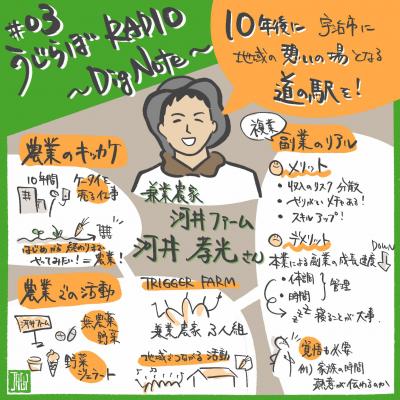 #03
うじらぼRADIO
～DigNote～
10年後に 宇治市に
地域の憩いの場となる
道の駅を!
農業のキッカケ
10年間
ケータイを
売る仕事
はじめから終わりまで
やってみたい!=農業!
農業での活動
河井ファーム
無農薬
野菜
野菜
ジェラート
兼業農家
河井ファーム
河井 孝光さん
TRIGGER FARM
兼業農家 3人組
地域をつながる活動
複業
副業のリアル
メリット
・収入のリスク分散
・やりがい×チャある!
・スキルアップ!
デメリット
本業による副業の成長速度
DOWN
・体調
・時間
管理
zzz 寝ることが大事.
覚悟も必要
例) 家族の時間
熱意が伝わるのか